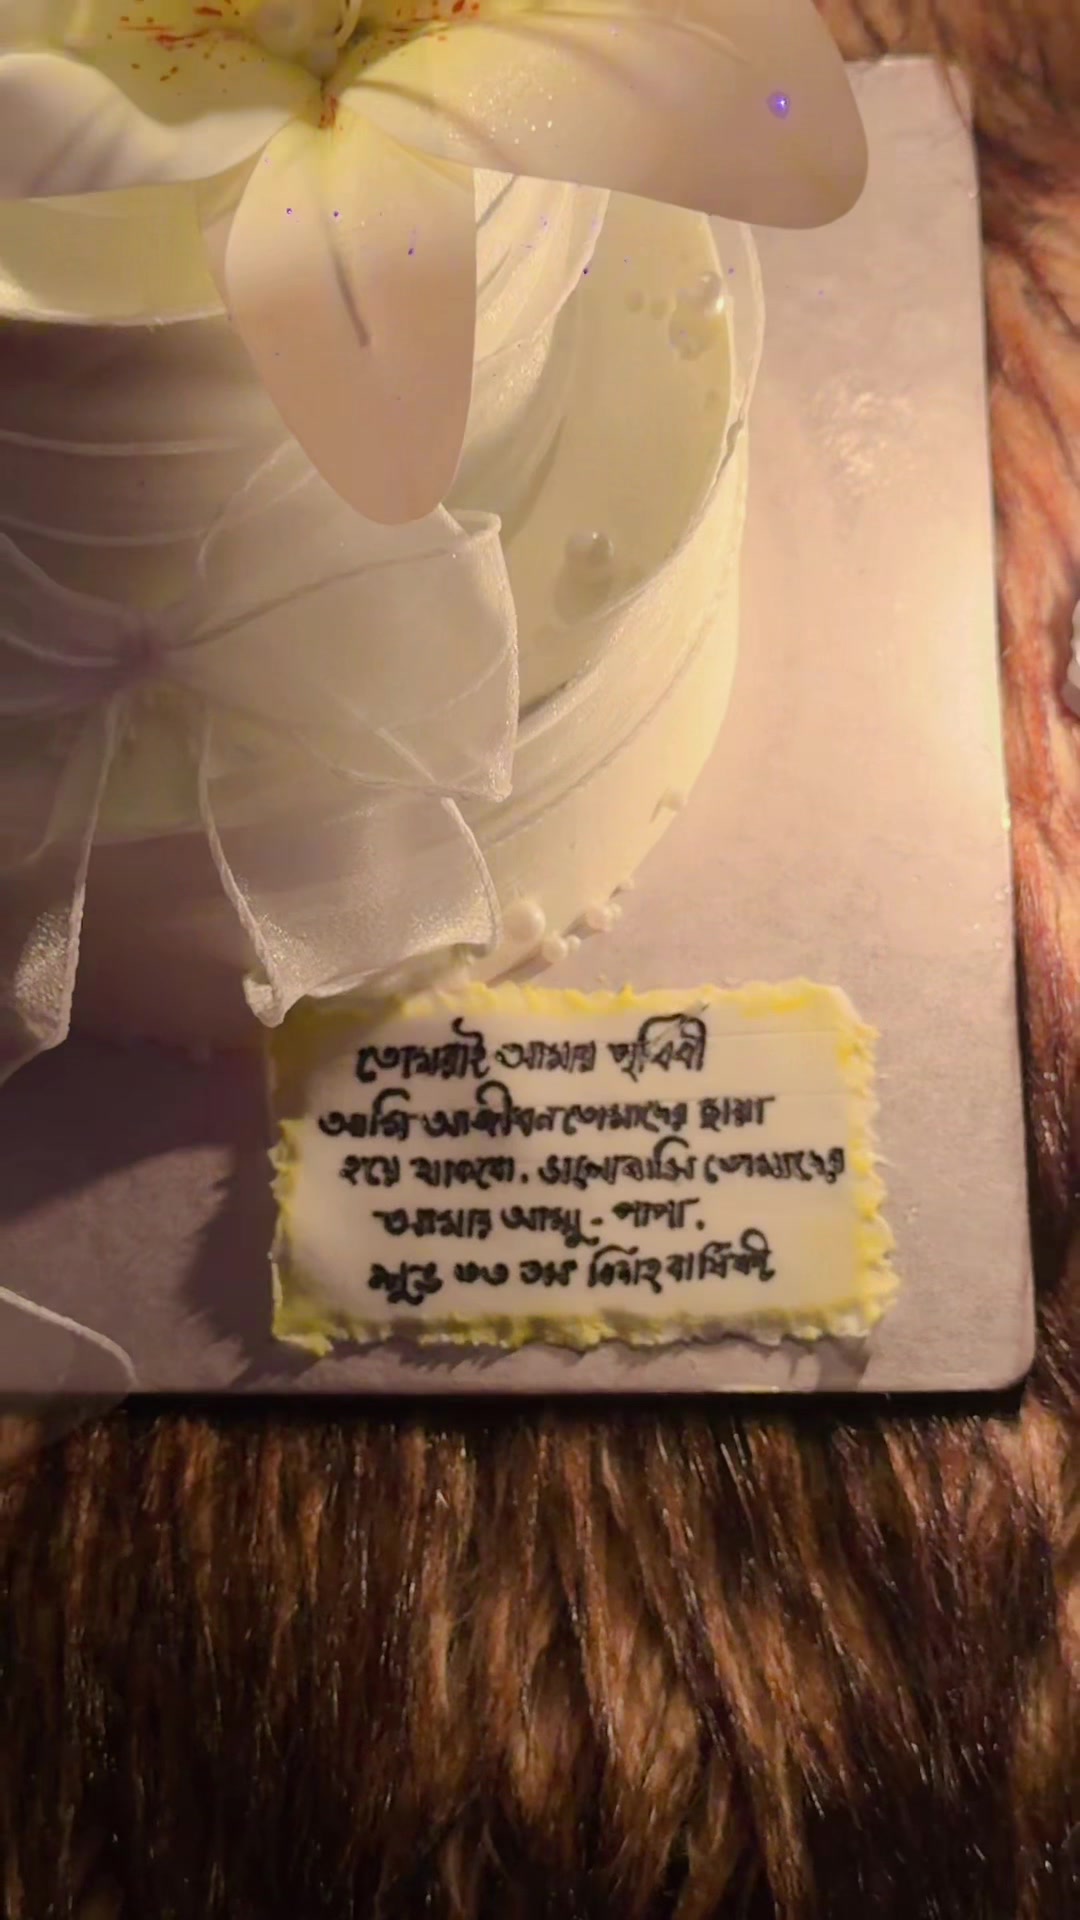 তোমরাই আমার পৃথিবী
আমি আজীবন তোমাদের ছায়া
হয়ে থাকবো. ভালোবাসি তোমাদের
আমার আম্মু - পাপা.
শুভ ৩৩ তম বিবাহ বার্ষিকী